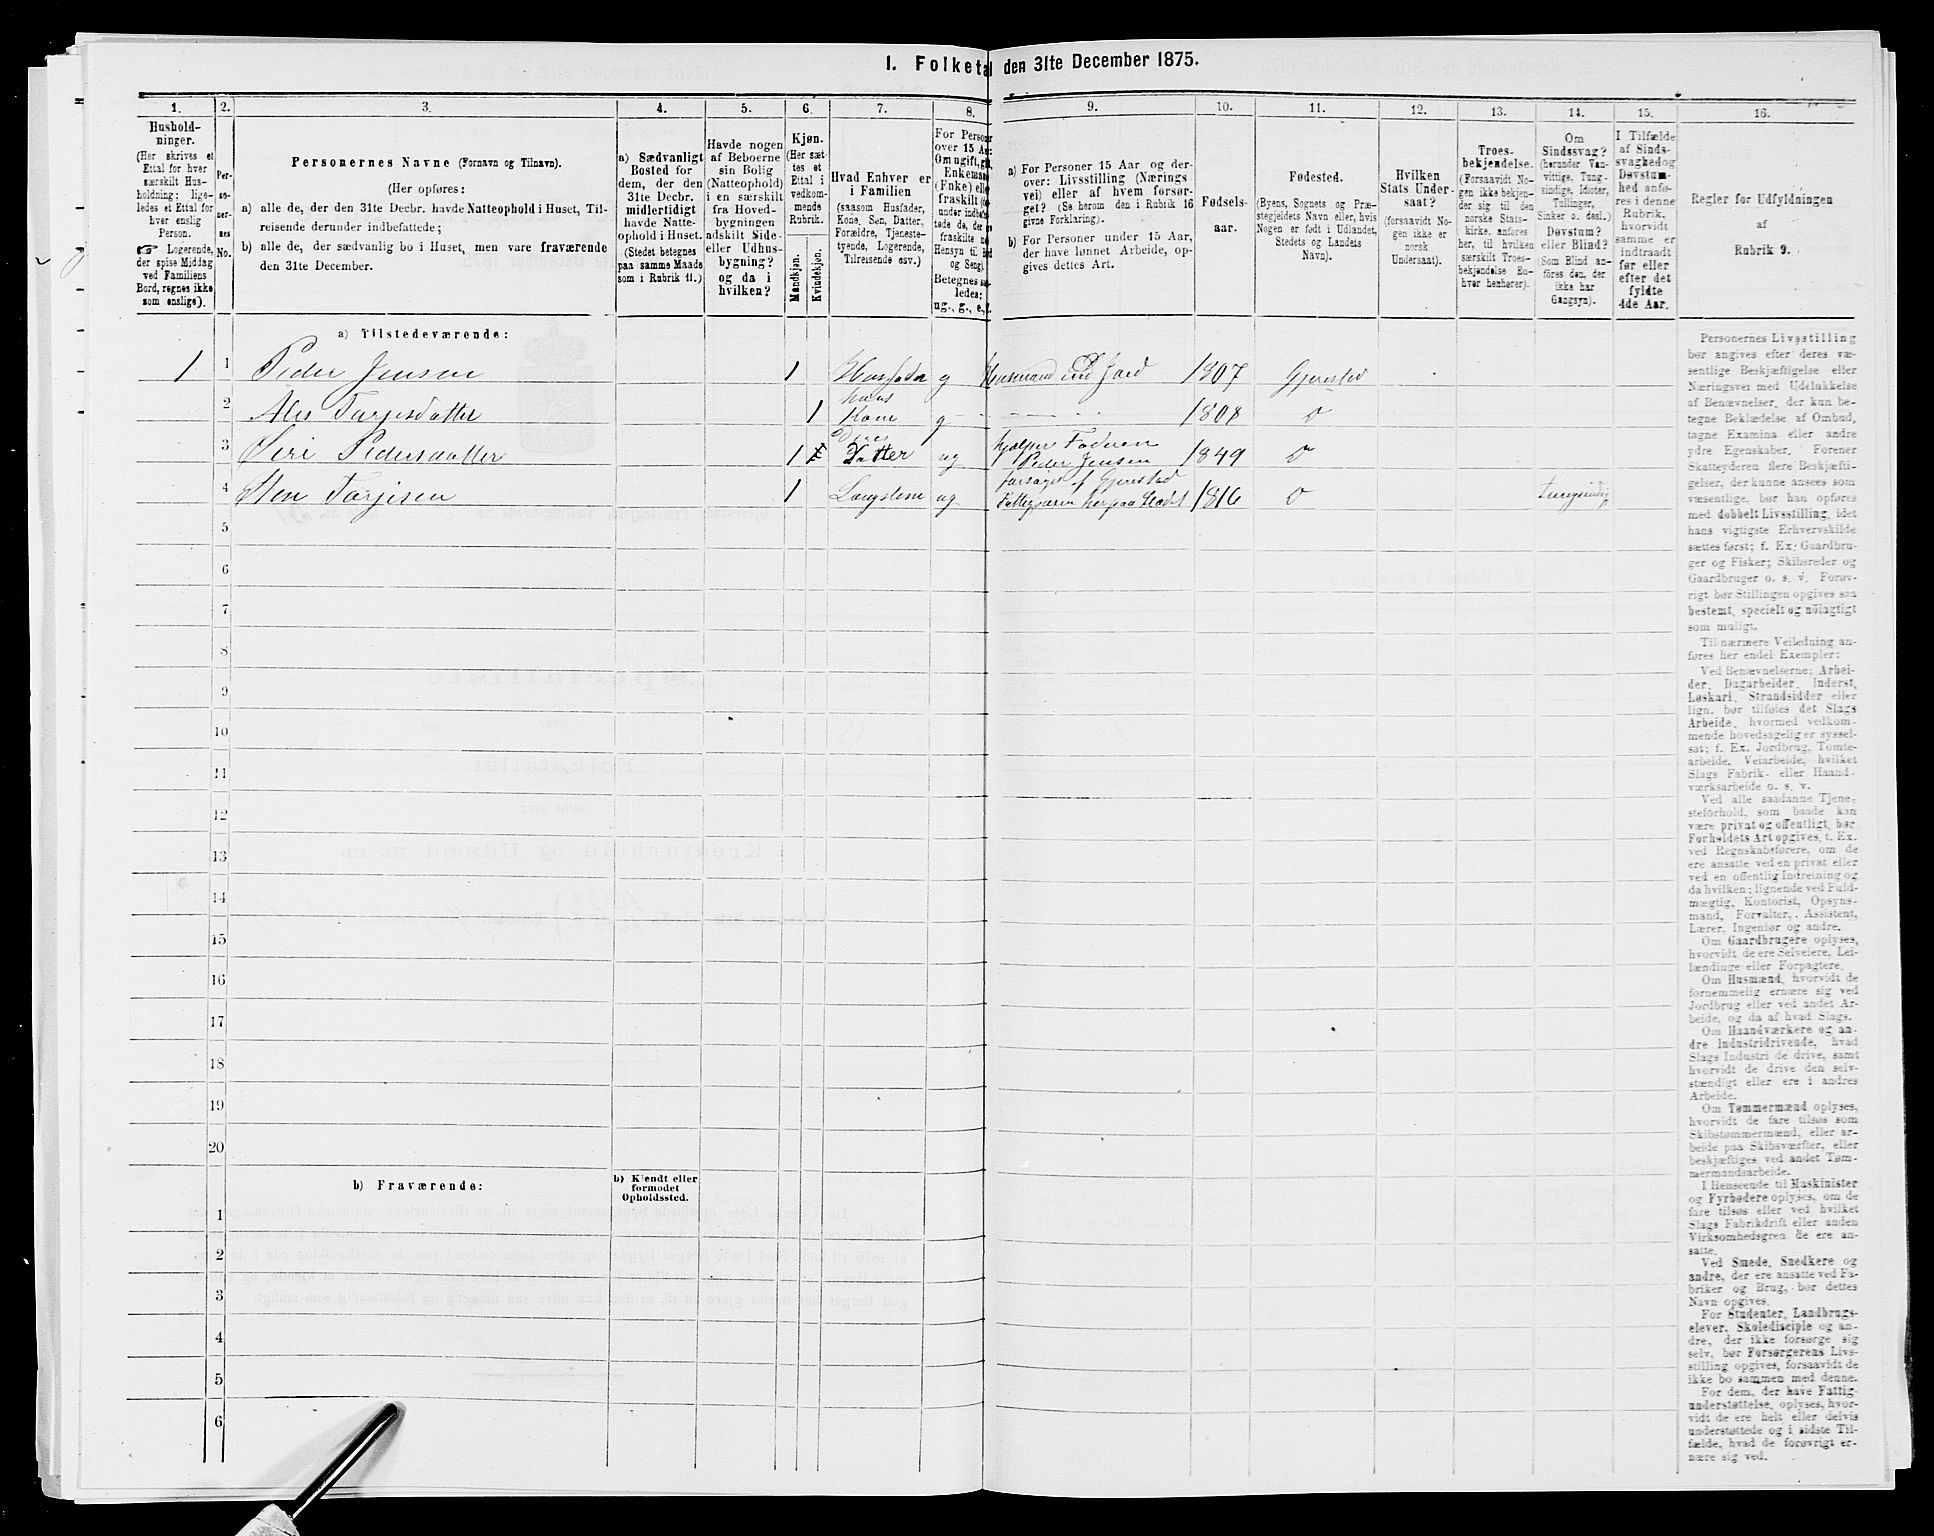 1. Folketal den 31te December 1875.
1. 2. 3. 4. 5. 6. 7. 8. 9. 10. 11. 12. 13. 14. 15. 16.
Hushold-
ninger.
(Her skrives et
Ettal for hver
særskilt Hus-
holdning; lige-
ledes et Ettal for
hver enslig
Person.
Logerende,
der spise Middag
ved Familiens
Bord, regnes ikke
som enslige).
Per-
so-
ner-
nes
No.
Personernes Navne (Fornavn og Tilnavn).
(Her opføres:
a) alle de, der den 31te Decbr. havde Natteophold i Huset, Til-
reisende derunder indbefattede;
b) alle de, der sædvanlig bo i Huset, men vare fraværende
den 31te December.
a) Sædvanligt
Bosted for
dem, der den
31te Decbr.
midlertidigt
havde Natte-
ophold i Huset.
(Stedet betegnes
paa samme Maade
som i Rubrik 11.)
Havde nogen
af Beboerne
sin Bolig
(Natteophold)
i en særskilt
fra Hoved-
bygningen
adskilt Side-
eller Udhus-
bygning?
og da i
hvilken?
Kjøn.
(Her sæt-
tes et
Ettal i
vedkom-
mende
Rubrik.
Mandkjøn.
Kvindekjøn.
Hvad Enhver er
i Familien
(saasom Husfader,
Kone, Søn, Datter,
Forældre, Tjeneste-
tyende, Logerende,
Tilreisende osv.).
For Personer
over 15 Aar:
Om ugift, gift,
Enkemand
(Enke) eller
fraskilt
Betegnes saa-
ledes:
ug., g., e., f.
a) For Personer 15 Aar og der-
over: Livsstilling (Nærings
vei) eller af hvem forsør-
get? (Se herom den i Rubrik 16
givne Forklaring).
b) For Personer under 15 Aar,
der have lønnet Arbeide, op-
gives dettes Art.
Fødsels-
aar.
Fødested.
(Byens, Sognets og Præ-
stegjeldets Navn eller, hvis
Nogen er født i Udlandet,
Stedets og Landets
Navn).
Hvilken
Stats Under-
saat?
(forsaavidt No-
gen ikke er
norsk
Undersaat).
Troes-
bekjendelse.
(Forsaavidt No-
gen ikke bekjen-
der sig til den
norske Stats-
kirke, anføres
her, til hvilken
særskilt Troes-
bekjendelse En-
hver henhører).
Om
Sindssvag?
(herunder Van-
vittige, Tung-
sindige, Idioter,
Tullinger,
Sinker o. desl.)
Døvstum?
eller Blind?
(Som Blind an-
føres den, der
ikke har
Gangsyn).
I Tilfælde
af Sinds-
svaghed og
Døvstum-
hed anfø-
res i denne
Rubrik,
hvorvidt
samme er
indtraadt
før eller
efter det
fyldte
4de Aar.
Regler for Udfyldningen
af
Rubrik 9.
a) Tilstedeværende:
1 1 Peder Jensen 1 Husfader g Husmand med Jord 1807 Gjerestad
2 Ales Targesdatter 1 hans Kone g 1808 o
3 Siri Pedersdatter 1 Deres Datter ug hjelper Faderen Peder Jensen 1849 o
4 Sten Targisen 1 Laugslem ug forsørget af Gjerestad Fattigvæsen her paa Stedet 1816 o Tungsindig
5
6
7
8
9
10
11
12
13
14
15
16
17
18
19
20
b) Fraværende:
b) Kjendt eller
formodet
Opholdssted.
1
2
3
4
5
6
Personernes Livsstilling
bør angives efter deres væ-
sentlige Beskjæftigelse eller
Næringsvei med Udelukkelse
af Benævnelser, der kun be-
tegne Beklædelse af Ombud,
tagne Examina eller andre
ydre Egenskaber. Forener
Skatteyderen flere Beskjæfti-
gelser, der kunne ansees som
væsentlige, bør han opføres
med dobbelt Livsstilling, idet
hans vigtigste Erhvervskilde
sættes først; f. Ex. Gaardbru-
ger og Fisker; Skibsreder og
Gaardbruger o. s. v. Forøv-
rigt bør Stillingen opgives saa
bestemt, specielt og nøiagtigt
som muligt.
Til nærmere Veiledning an-
føres her endel Exempler:
Ved Benævnelserne: Arbei-
der, Dagarbeider, Inderst,
Løskarl, Strandsidder eller
lign. bør tilføies det Slags
Arbeide, hvormed vedkom-
mende hovedsagelig er syssel-
sat; f. Ex. Jordbrug, Tomte-
arbeide, Veiarbeide, hvilket
Slags Fabrik- eller Haand-
værksarbeide o. s. v.
Ved alle saadanne Tjene-
steforhold, som baade kan
være privat og offentligt, bør
Forholdets Art opgives, t. Ex.
ved Regnskabsførere, om de
ere ansatte ved en privat eller
ved en offentlig Indretning og
da hvilken; lignende ved Fuld-
mægtig, Kontorist, Opsyns-
mand, Forvalter, Assistent,
Lærer, Ingeniør og andre.
Om Gaardbrugere oplyses,
hvorvidt de ere Selveiere, Lei-
lændinge eller Forpagtere.
Om Husmænd, hvorvidt de
fornemmelig ernære sig ved
Jordbrug eller ved andet Ar-
beide, og da af hvad Slags.
Om Haandværkere og an-
dre Industridrivende, hvad
Slags Industri de drive, samt
hvorvidt de drive den selv-
stændigt eller ere i andres
Arbeide.
Om Tømmermænd oplyses,
hvorvidt de fare tilsøs som
Skibstømmermænd, eller ar-
beide paa Skibsværfter, eller
beskjæftiges ved andet Tøm-
mermandsarbeide.
I Henseende til Maskinister
og Fyrbødere oplyses, om de
fare tilsøs eller ved hvilket
Slags Fabrikdrift eller anden
Virksomhedsgren de ere an-
satte.
Ved Smede, Snedkere og
andre, der ere ansatte ved Fa-
briker og Brug, bør dettes
Navn opgives.
For Studenter, Landbrugs-
elever, Skoledisciple og an-
dre, der ikke forsørge sig
selv, bør Forsørgerens Livs-
stilling opgives, forsaavidt de
ikke bo sammen med denne.
For dem, der have Fattig-
understøttelse, oplyses, hvor-
vidt de ere helt eller delvis
understøttede og i sidste Til-
fælde, hvad de forøvrigt er-
nære sig ved.